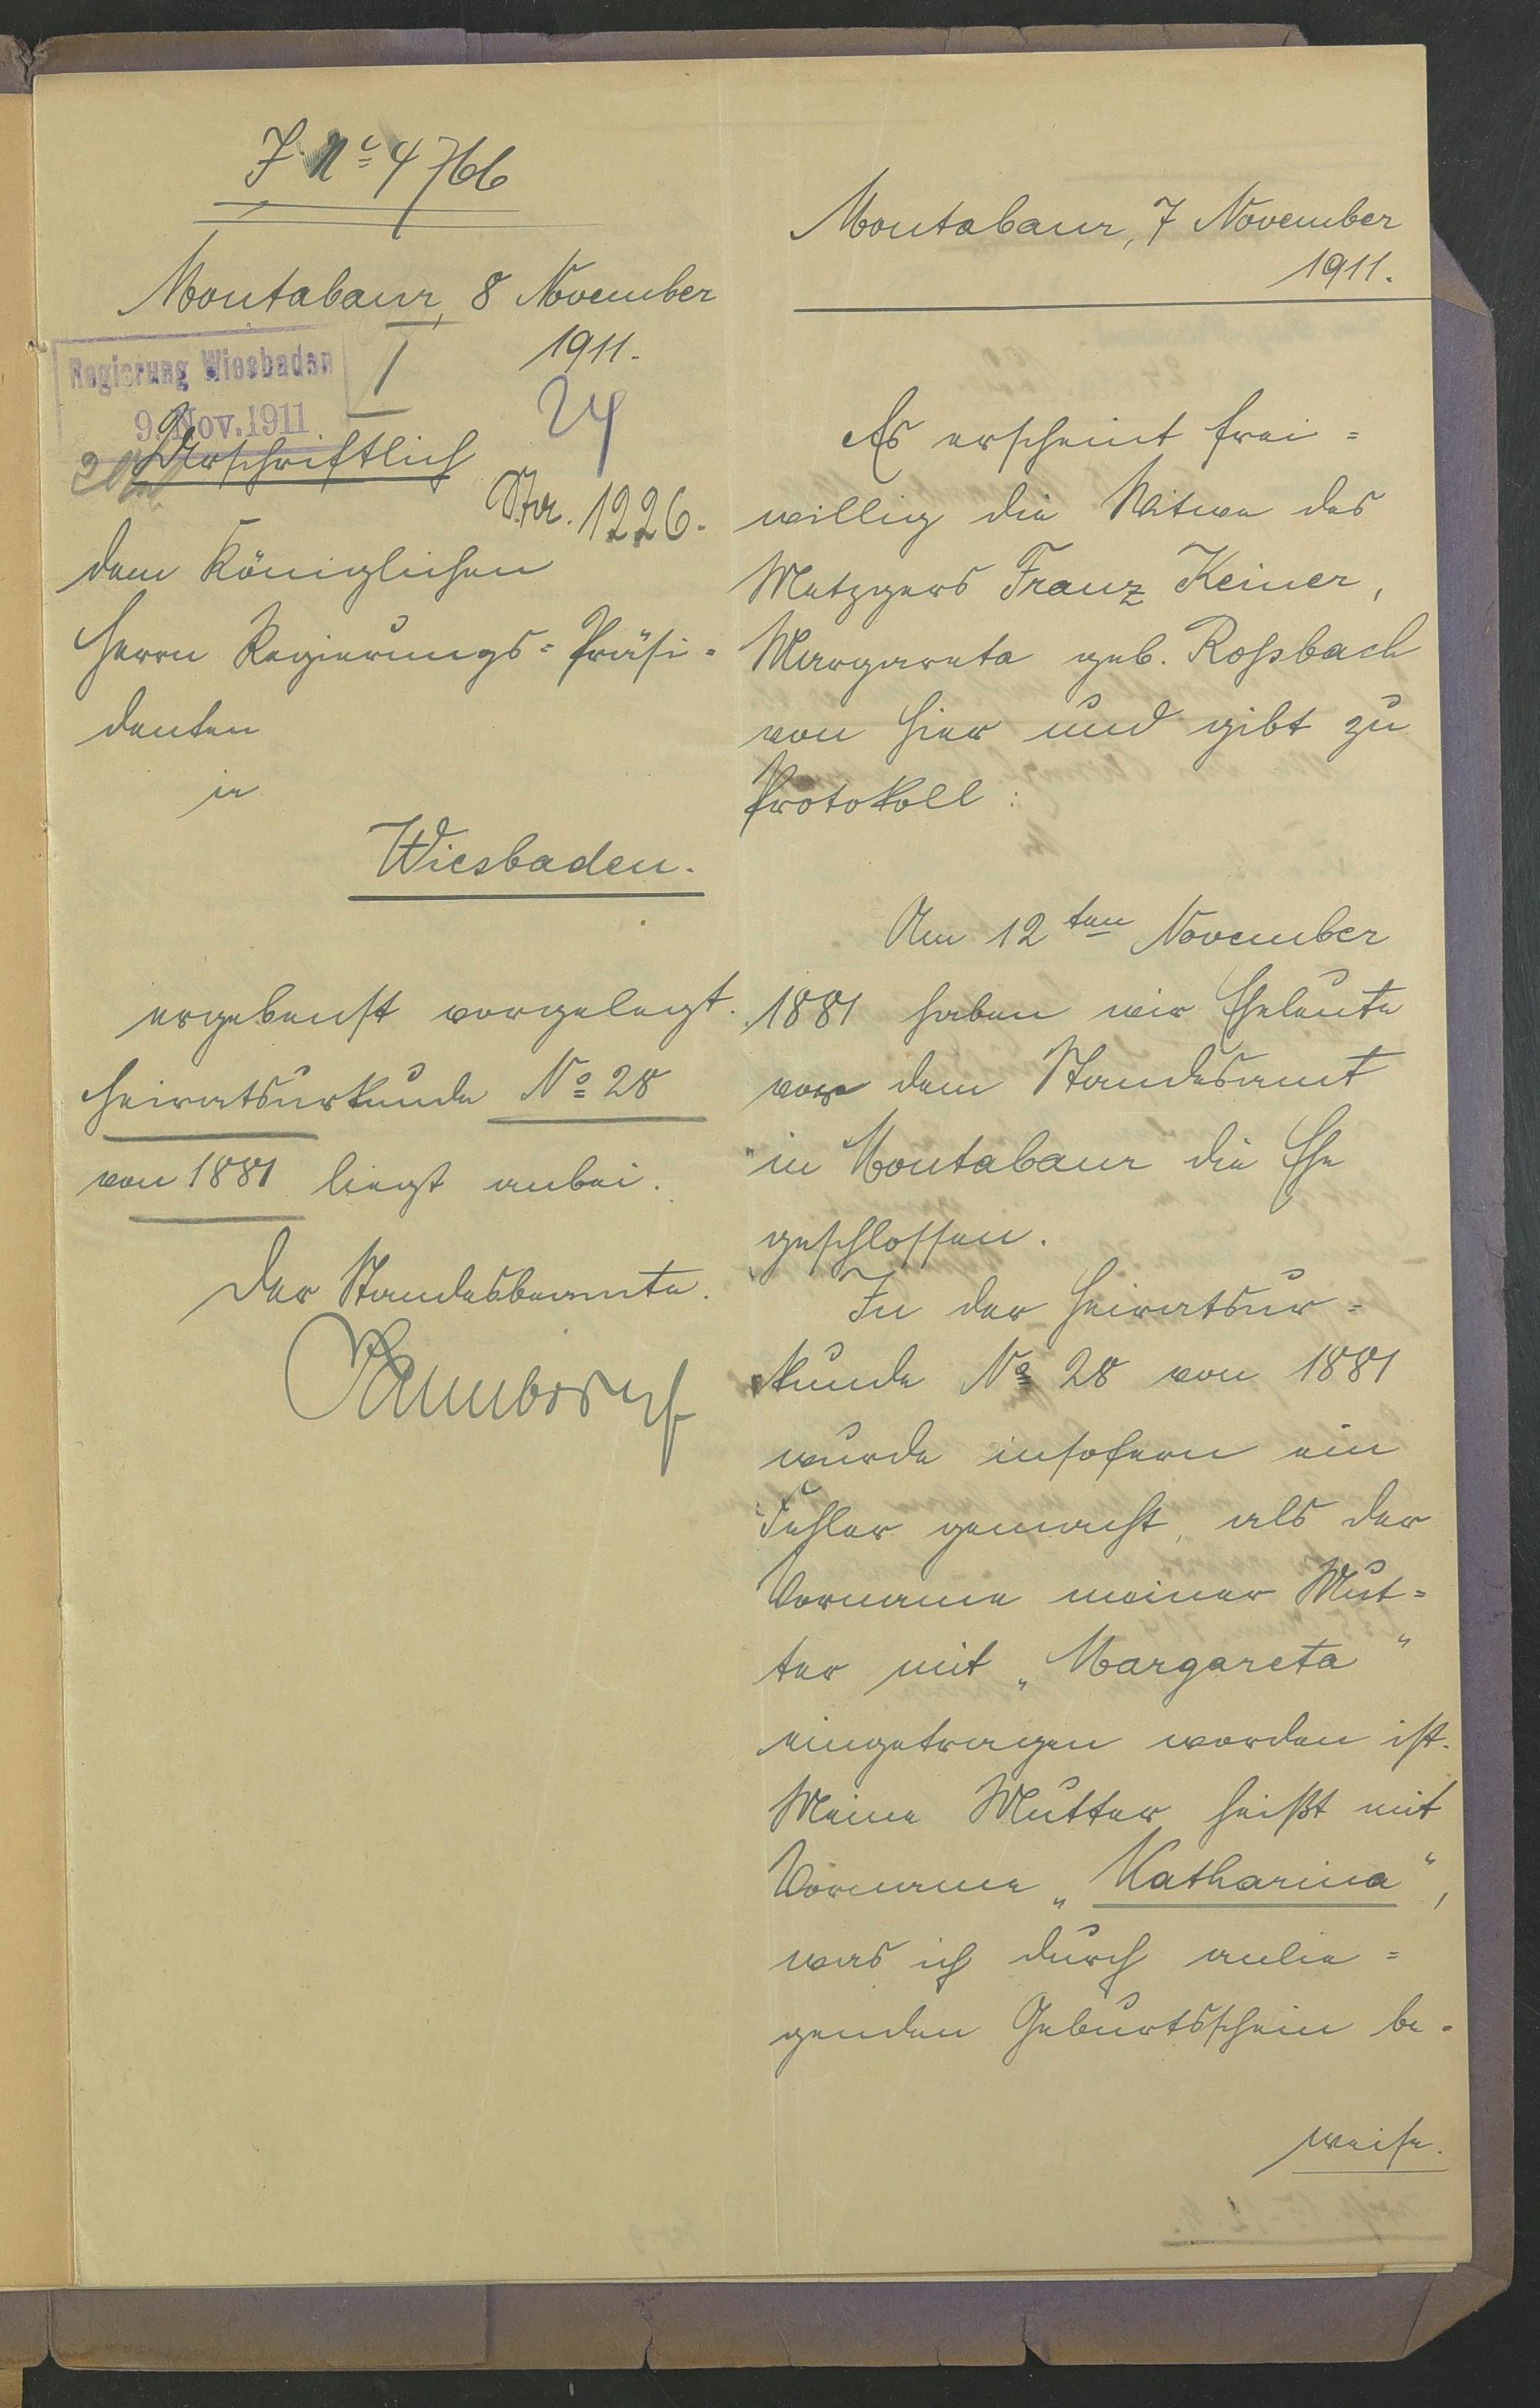 J. Nº 4766
Montabaur, 8 November
1911.
Regierung Wiesbaden
9. Nov. 1911
I
Urschriftlich
Nr. 1226.
dem Königlichen
Herrn Regierungs=Präsi=
denten
in
Wiesbaden.
ergebenst vorgelegt.
Heiratsurkunde Nº 28
von 1881 liegt anbei.
Der Standesbeamte.
Montabaur, 7 November
1911.
Es erscheint frei=
willig die Witwe des
Metzgers Franz Keiner,
Margareta geb. Roßbach
von hier und gibt zu
Protokoll:
Am 12ten November
1881 haben wir Eheleute
vor dem Standesamt
in Montabaur die Ehe
geschlossen.
In der Heiratsur=
kunde Nº 28 von 1881
wurde insofern ein
Fehler gemacht, als der
Vorname meiner Mut=
ter mit „Margareta“
eingetragen worden ist.
Meine Mutter heißt mit
Vorname „Katharina“,
was ich durch anlie=
genden Geburtsschein be=
weise.